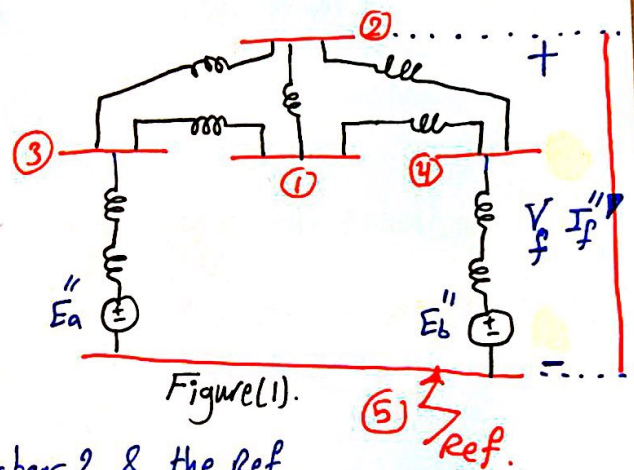 ②
+
③
①
④
V_f I_f"
Ea"
Eb"
-
Figure(1).
⑤
Ref.
2 & the Ref